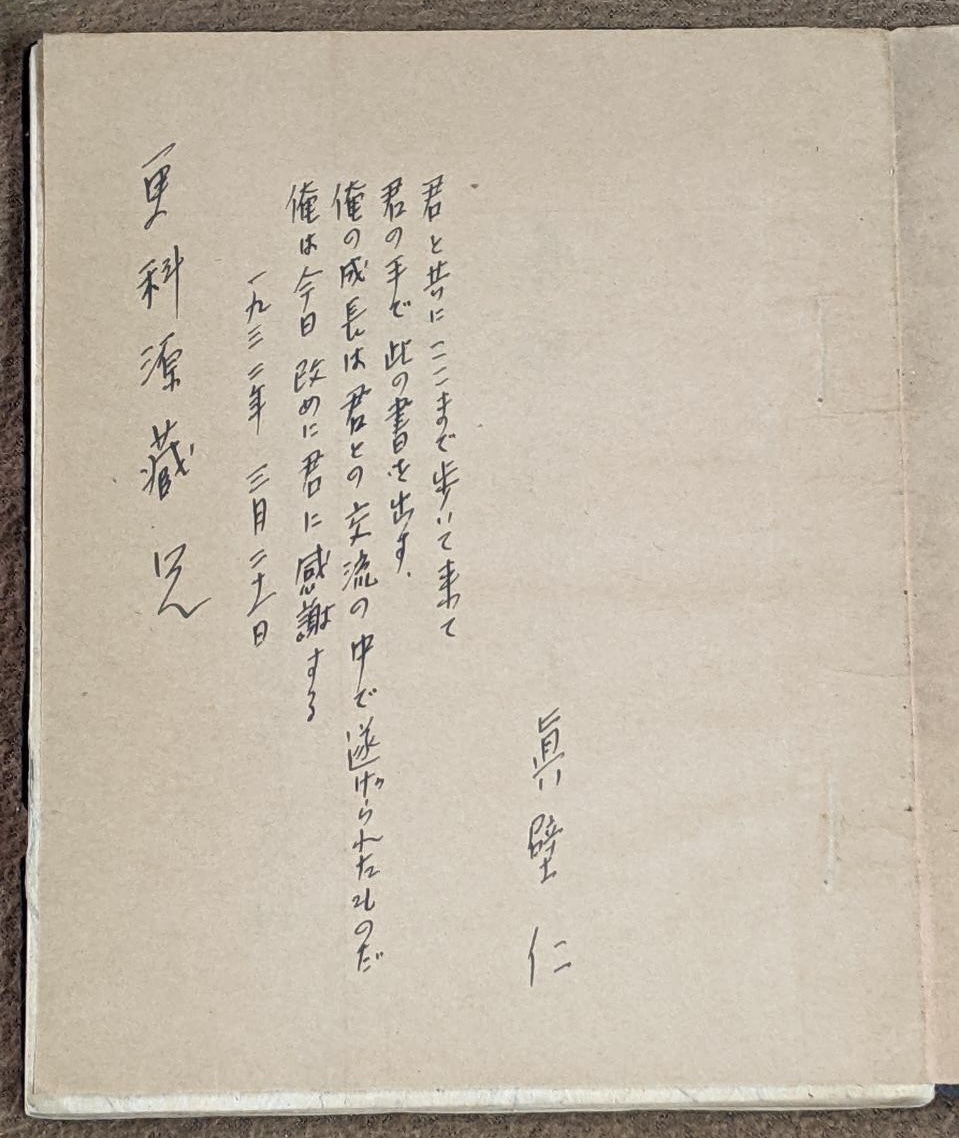 眞壁仁
君と共にここまで歩いて来て
君の手で此の書を出す.
俺の成長は君との交流の中で遂げられたものだ
俺は今日改めに君に感謝する
一九三二年 三月二十一日
更科源藏 兄